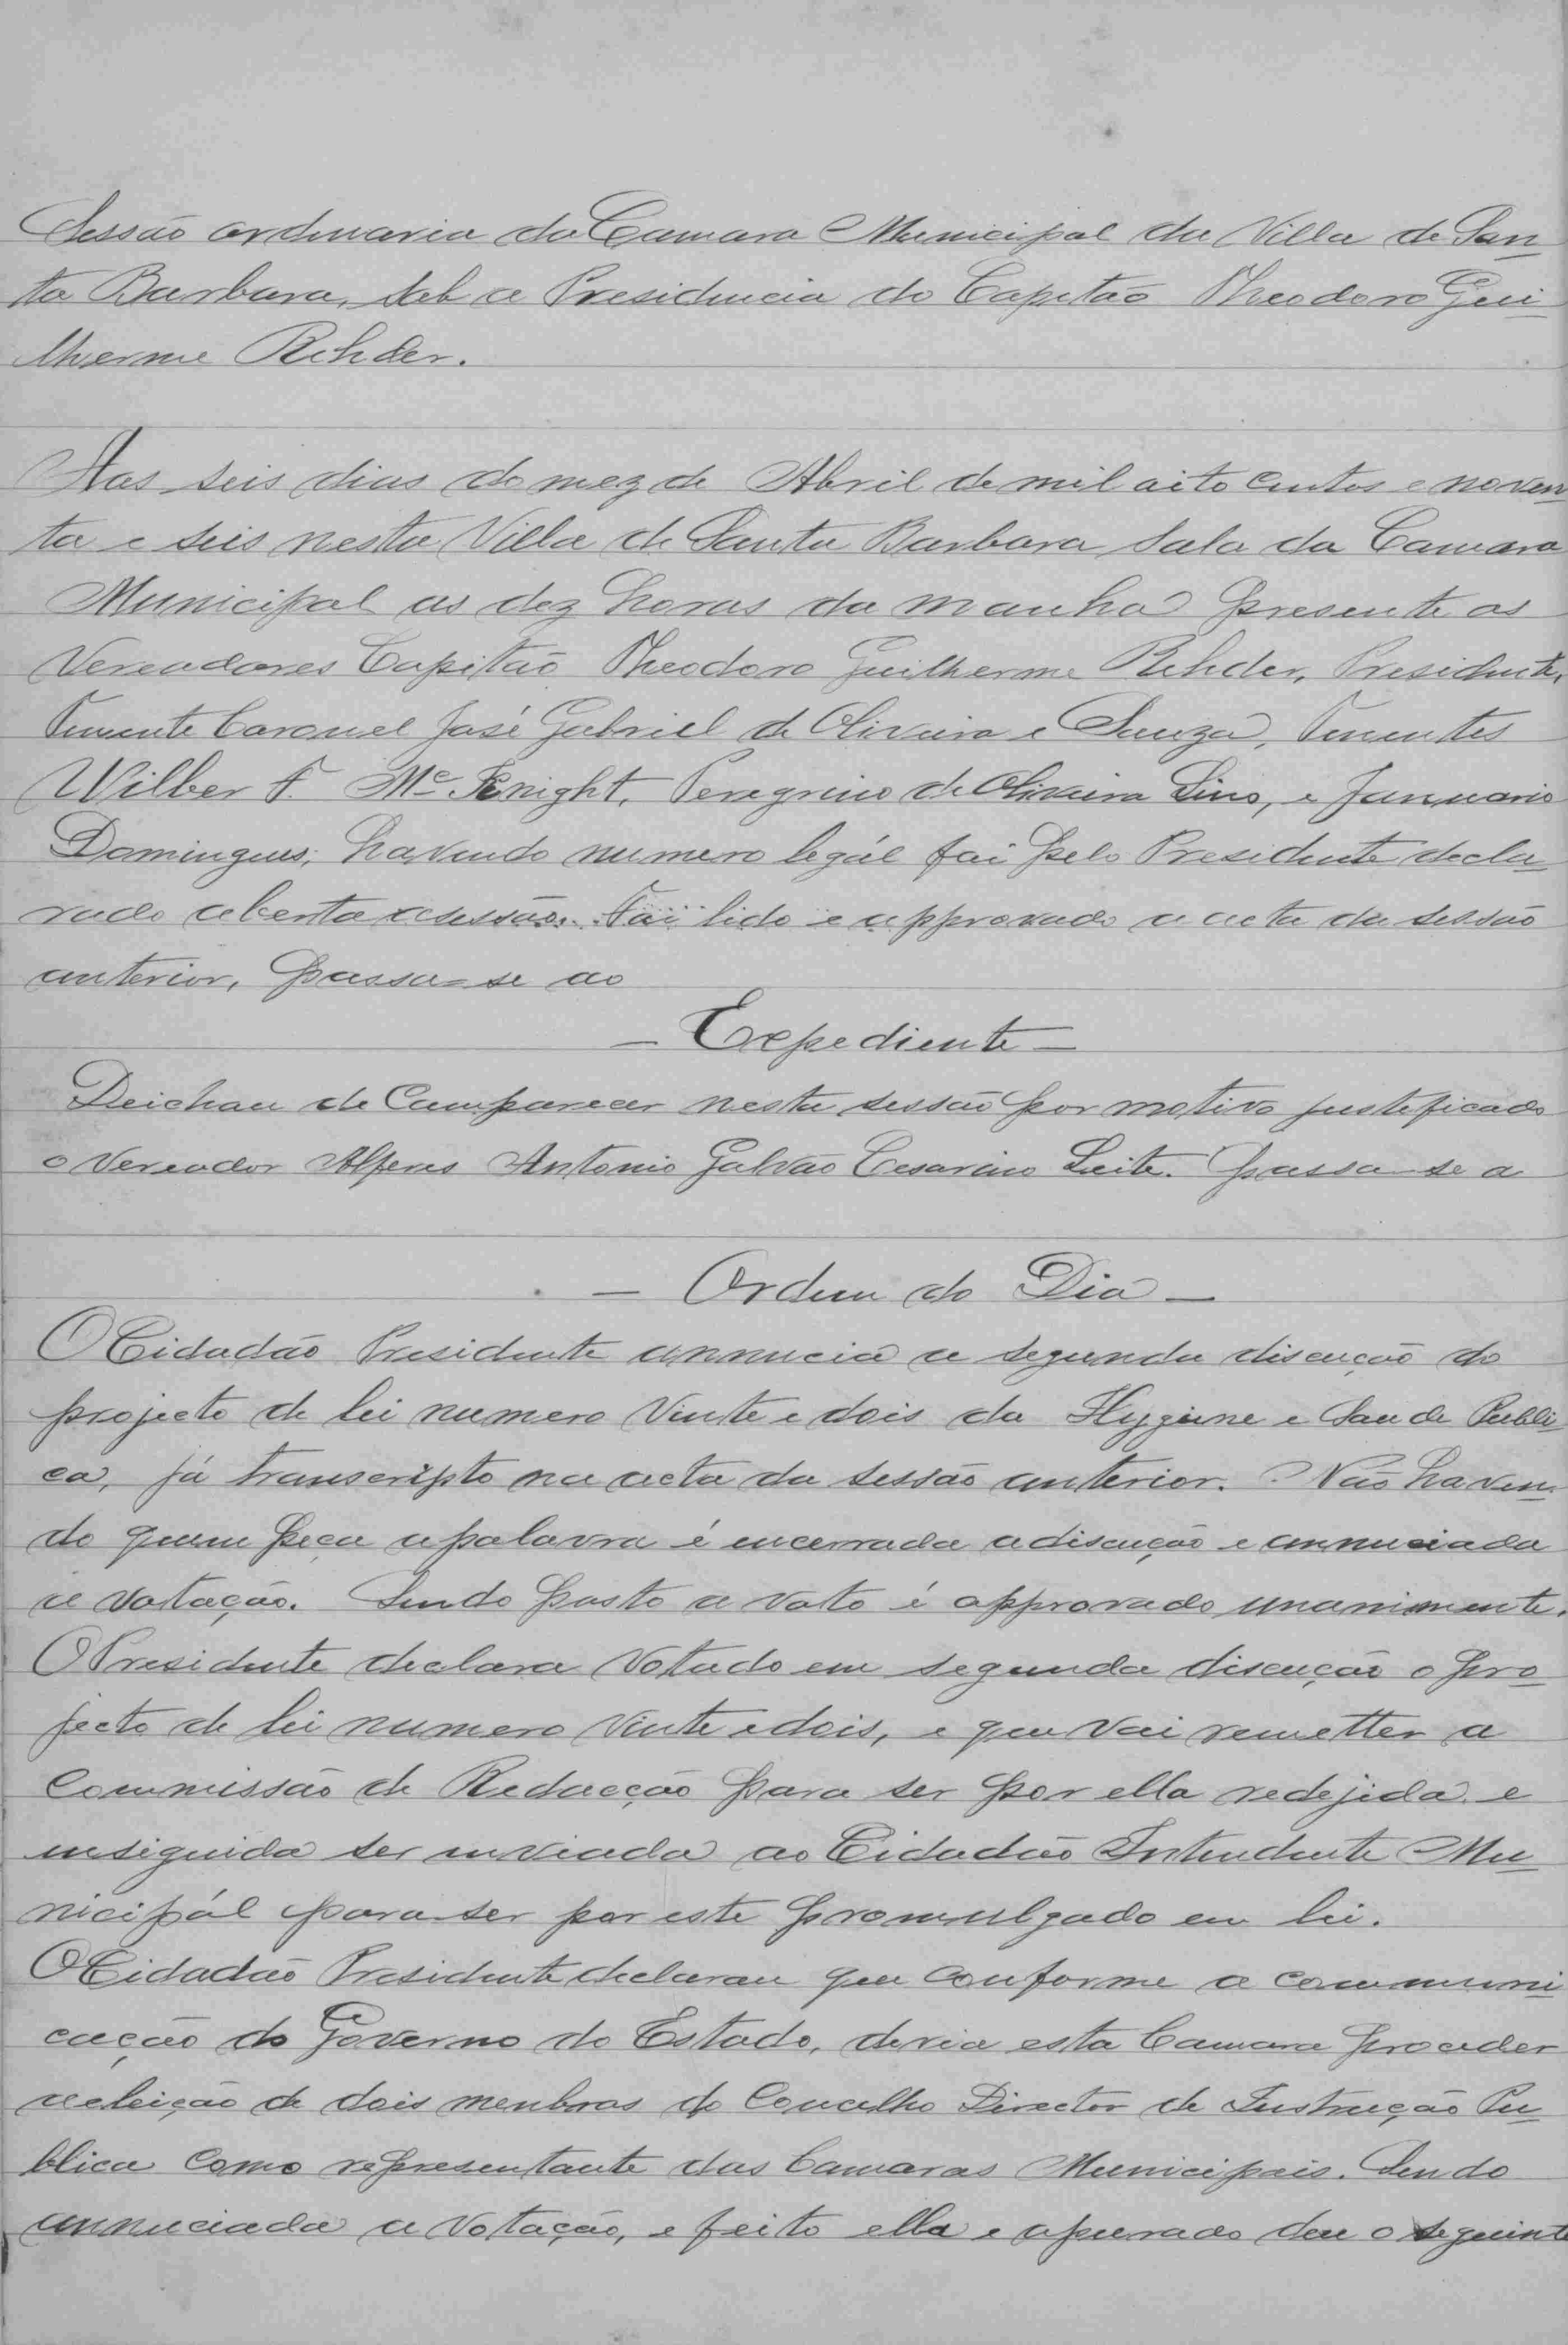 Sessão ordinaria da Camara Municipal da Villa de San
ta Barbara, sob a Presidencia do Capitão Theodoro Gui
lherme Rehder.
Aos seis dias do mez de Abril de mil oito centos e noven
ta e seis nesta Villa de Santa Barbara Sala da Camara
Municipal as dez horas da manhã presente os
Vereadores Capitão Theodoro Guilherme Rehder, Presidente,
Tenente Coronel José Gabriel de Oliveira e Souza, Tenentes
Wilber F. Mc Knight, Peregrino de Oliveira Lino, e Januario
Domingues; havendo numero legál foi pelo Presidente decla
rado aberta a sessão. Foi lido e approvado a acta da sessão
anterior, passa-se ao
- Expediente -
Deichou de Comparecer nesta sessão por motivo justificado
o Vereador Alferes Antonio Galvão Cesarino Leite. Passa-se a
- Ordem do Dia -
O Cidadão Presidente annucia a segunda discução do
projecto de lei numero Vinte e dois da Hygiene e Saude Publi
ca, já transcripto na acta da sessão anterior. Não haven
do quem peça a palavra é encerrada a discução e annuciada
a votação. Sendo posto a voto é approvado unanimente.
O Presidente declara Votado em segunda discução o pro
jecto de lei numero Vinte e dois, e que vai remetter a
Commissão de Redacção para ser por ella redejida e
inseguida ser inviada ao Cidadão Intendente Mu
nicipál para ser por este promulgado em lei.
O Cidadão Presidente declarou que conforme a communi
cação do Governo do Estado, devia esta Camara proceder
a eleição de dois menbros do Concelho Director de Instrução Pu
blica como representante das Camaras Municipais. Sendo
annuciada a Votação, e feito ella e apurado deu o seguinte